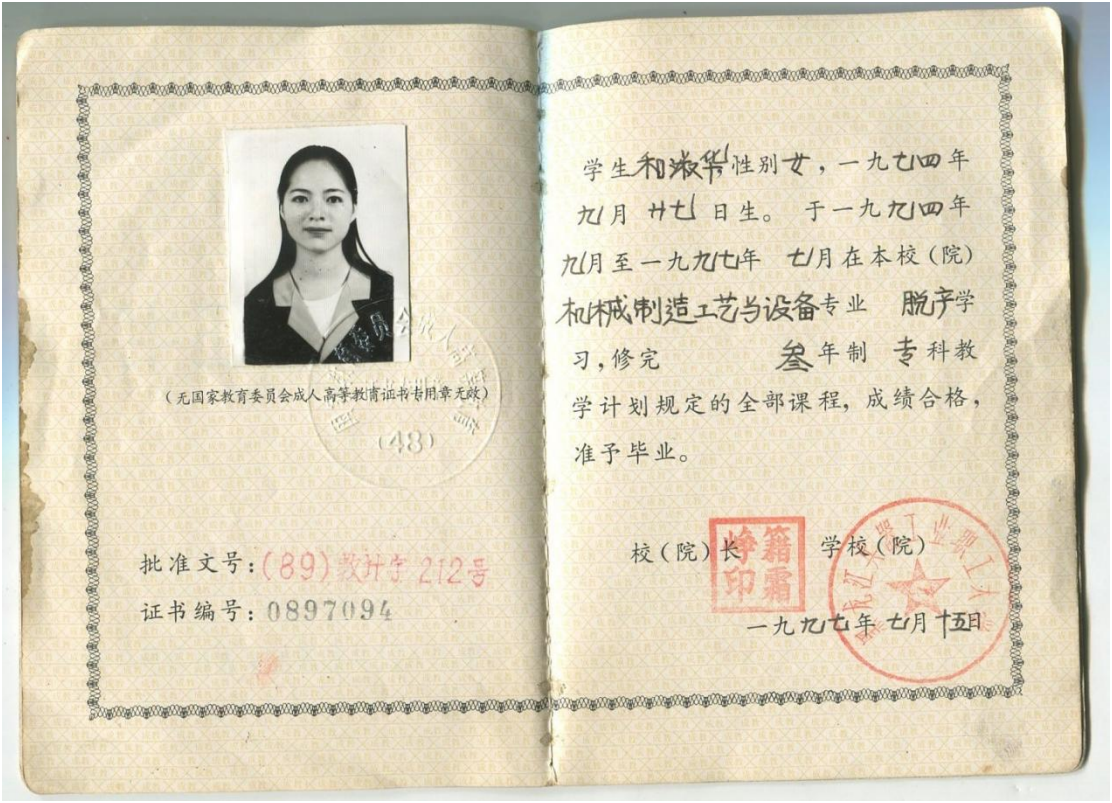 (无国家教育委员会成人高等教育证书专用章无效)
(48)
批准文号:(89)教计字212号
证书编号:0897094
学生和淑华性别女,一九七四年
九月廿七日生。于一九九四年
九月至一九九七年 七月在本校(院)
机械制造工艺与设备专业 脱产学
习,修完 叁年制 专科教
学计划规定的全部课程,成绩合格,
准予毕业。
校(院)长 学校(院)
一九九七年七月十五日